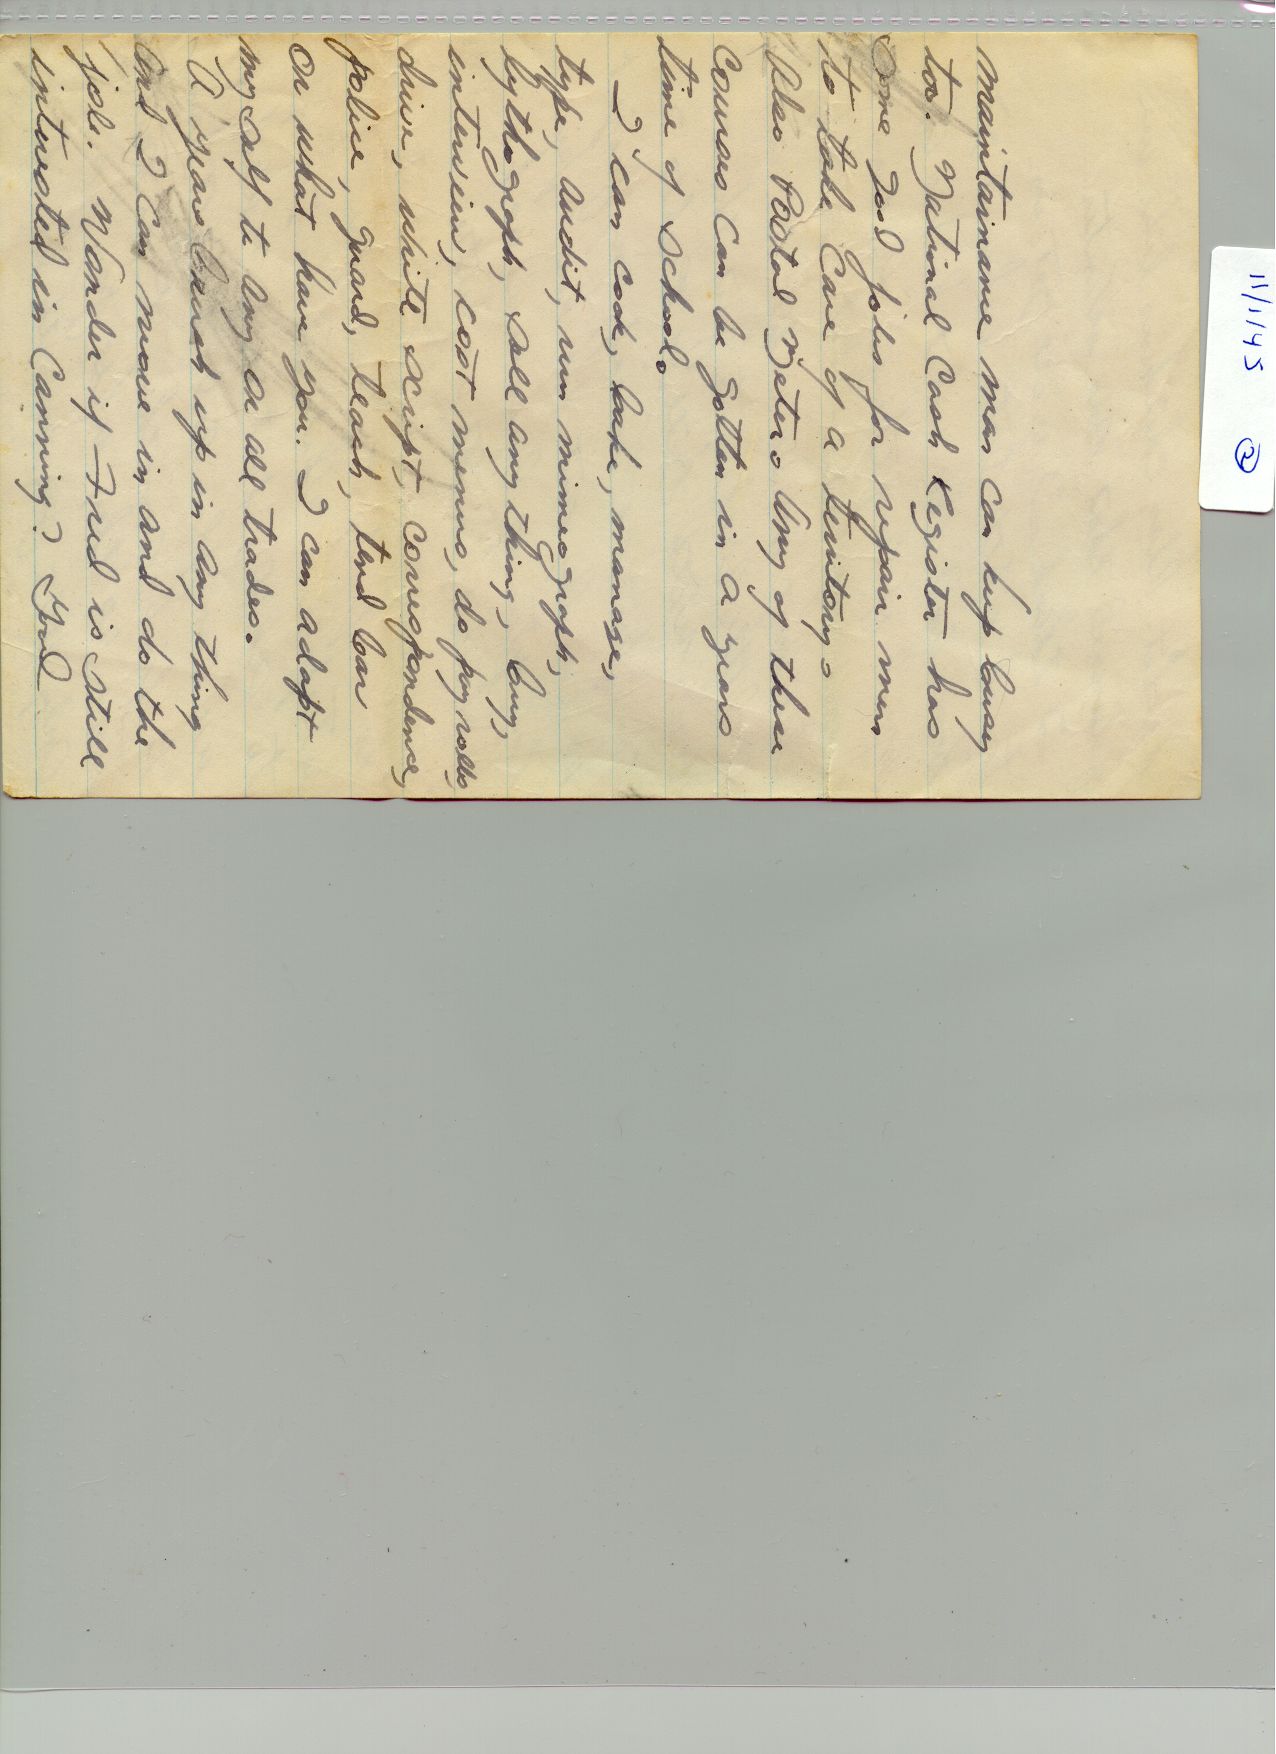 11/1/45 2
maintainance man can keep busy
too. National Cash Register has
some good jobs for repair men
to take care of a territory.
Also Postal Meter. Any of these
courses can be gotten in a years
time of school.
I can cook, bake, manage,
type, audit, run mimeograph,
lythograph, sell any thing, buy,
interview, cost menus, do payrolls,
drive, write script, correspondence,
police, guard, teach, tend bar
or what have you. I can adapt
my self to any or all trades.
A years brush up in any thing
and I can move in and do the
job. Wonder if Fred is still
interested in Canning? Food